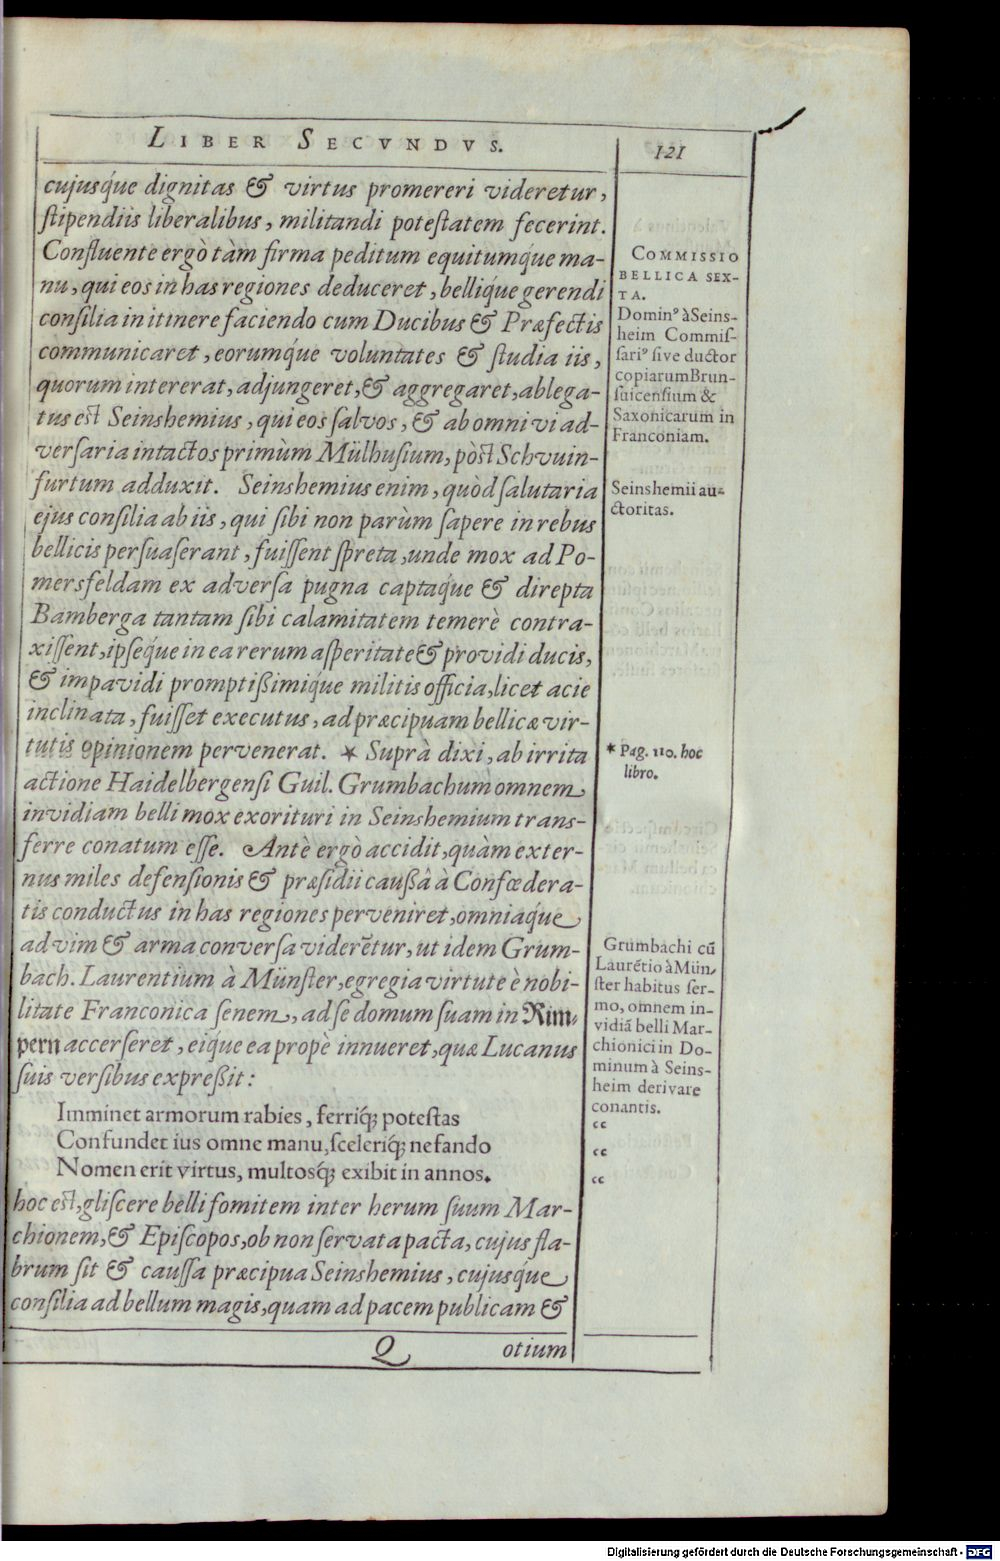 LIBER SECVNDVS.
121
cujusq́ue dignitas & virtus promereri videretur,
stipendiis liberalibus, militandi potestatem fecerint.
Confluente ergò tàm firma peditum equitumq́ue ma-
nu, qui eos in has regiones deduceret, belliq́ue gerendi
consilia in itinere faciendo cum Ducibus & Præfectis
communicaret, eorumq́ue voluntates & studia iis,
quorum intererat, adjungeret, & aggregaret, ablega-
tus est Seinshemius, qui eos salvos, & ab omni vi ad-
versaria intactos primùm Mülhusium, pòst Schvuin-
furtum adduxit. Seinshemius enim, quòd salutaria
ejus consilia ab iis, qui sibi non parùm sapere in rebus
bellicis persuaserant, fuissent spreta, unde mox ad Po-
mersfeldam ex adversa pugna captaq́ue & direpta
Bamberga tantam sibi calamitatem temerè contra-
xissent, ipseq́ue in ea rerum asperitate & providi ducis,
& impavidi promptißimiq́ue militis officia, licet acie
inclinata, fuisset executus, ad præcipuam bellicæ vir-
tutis opinionem pervenerat. * Suprà dixi, ab irrita
actione Haidelbergensi Guil. Grumbachum omnem
invidiam belli mox exorituri in Seinshemium trans-
ferre conatum esse. Antè ergò accidit, quàm exter-
nus miles defensionis & præsidii caußâ à Confœdera-
tis conductus in has regiones perveniret, omniaq́ue
ad vim & arma conversa viderētur, ut idem Grum-
bach. Laurentium à Münster, egregia virtute è nobi-
litate Franconica senem, ad se domum suam in Rim-
pern accerseret, eiq́ue ea propè innueret, quæ Lucanus
suis versibus expreßit:
Imminet armorum rabies, ferriq́; potestas
Confundet ius omne manu, sceleriq́; nefando
Nomen erit virtus, multosq́; exibit in annos.
hoc est, gliscere belli fomitem inter herum suum Mar-
chionem, & Episcopos, ob non servata pacta, cujus fla-
brum sit & caussa præcipua Seinshemius, cujusq́ue
consilia ad bellum magis, quam ad pacem publicam &
Q
otium
COMMISSIO
BELLICA SEX-
TA.
Dominꝰ à Seins-
heim Commis-
sariꝰ sive ductor
copiarum Brun-
suicensium &
Saxonicarum in
Franconiam.
Seinshemii au-
ctoritas.
* Pag. 110. hoc
libro.
Grumbachi cū
Laurētio à Mün-
ster habitus ser-
mo, omnem in-
vidiā belli Mar-
chionici in Do-
minum à Seins-
heim derivare
conantis.
“
“
“
Digitalisierung gefördert durch die Deutsche Forschungsgemeinschaft - DFG